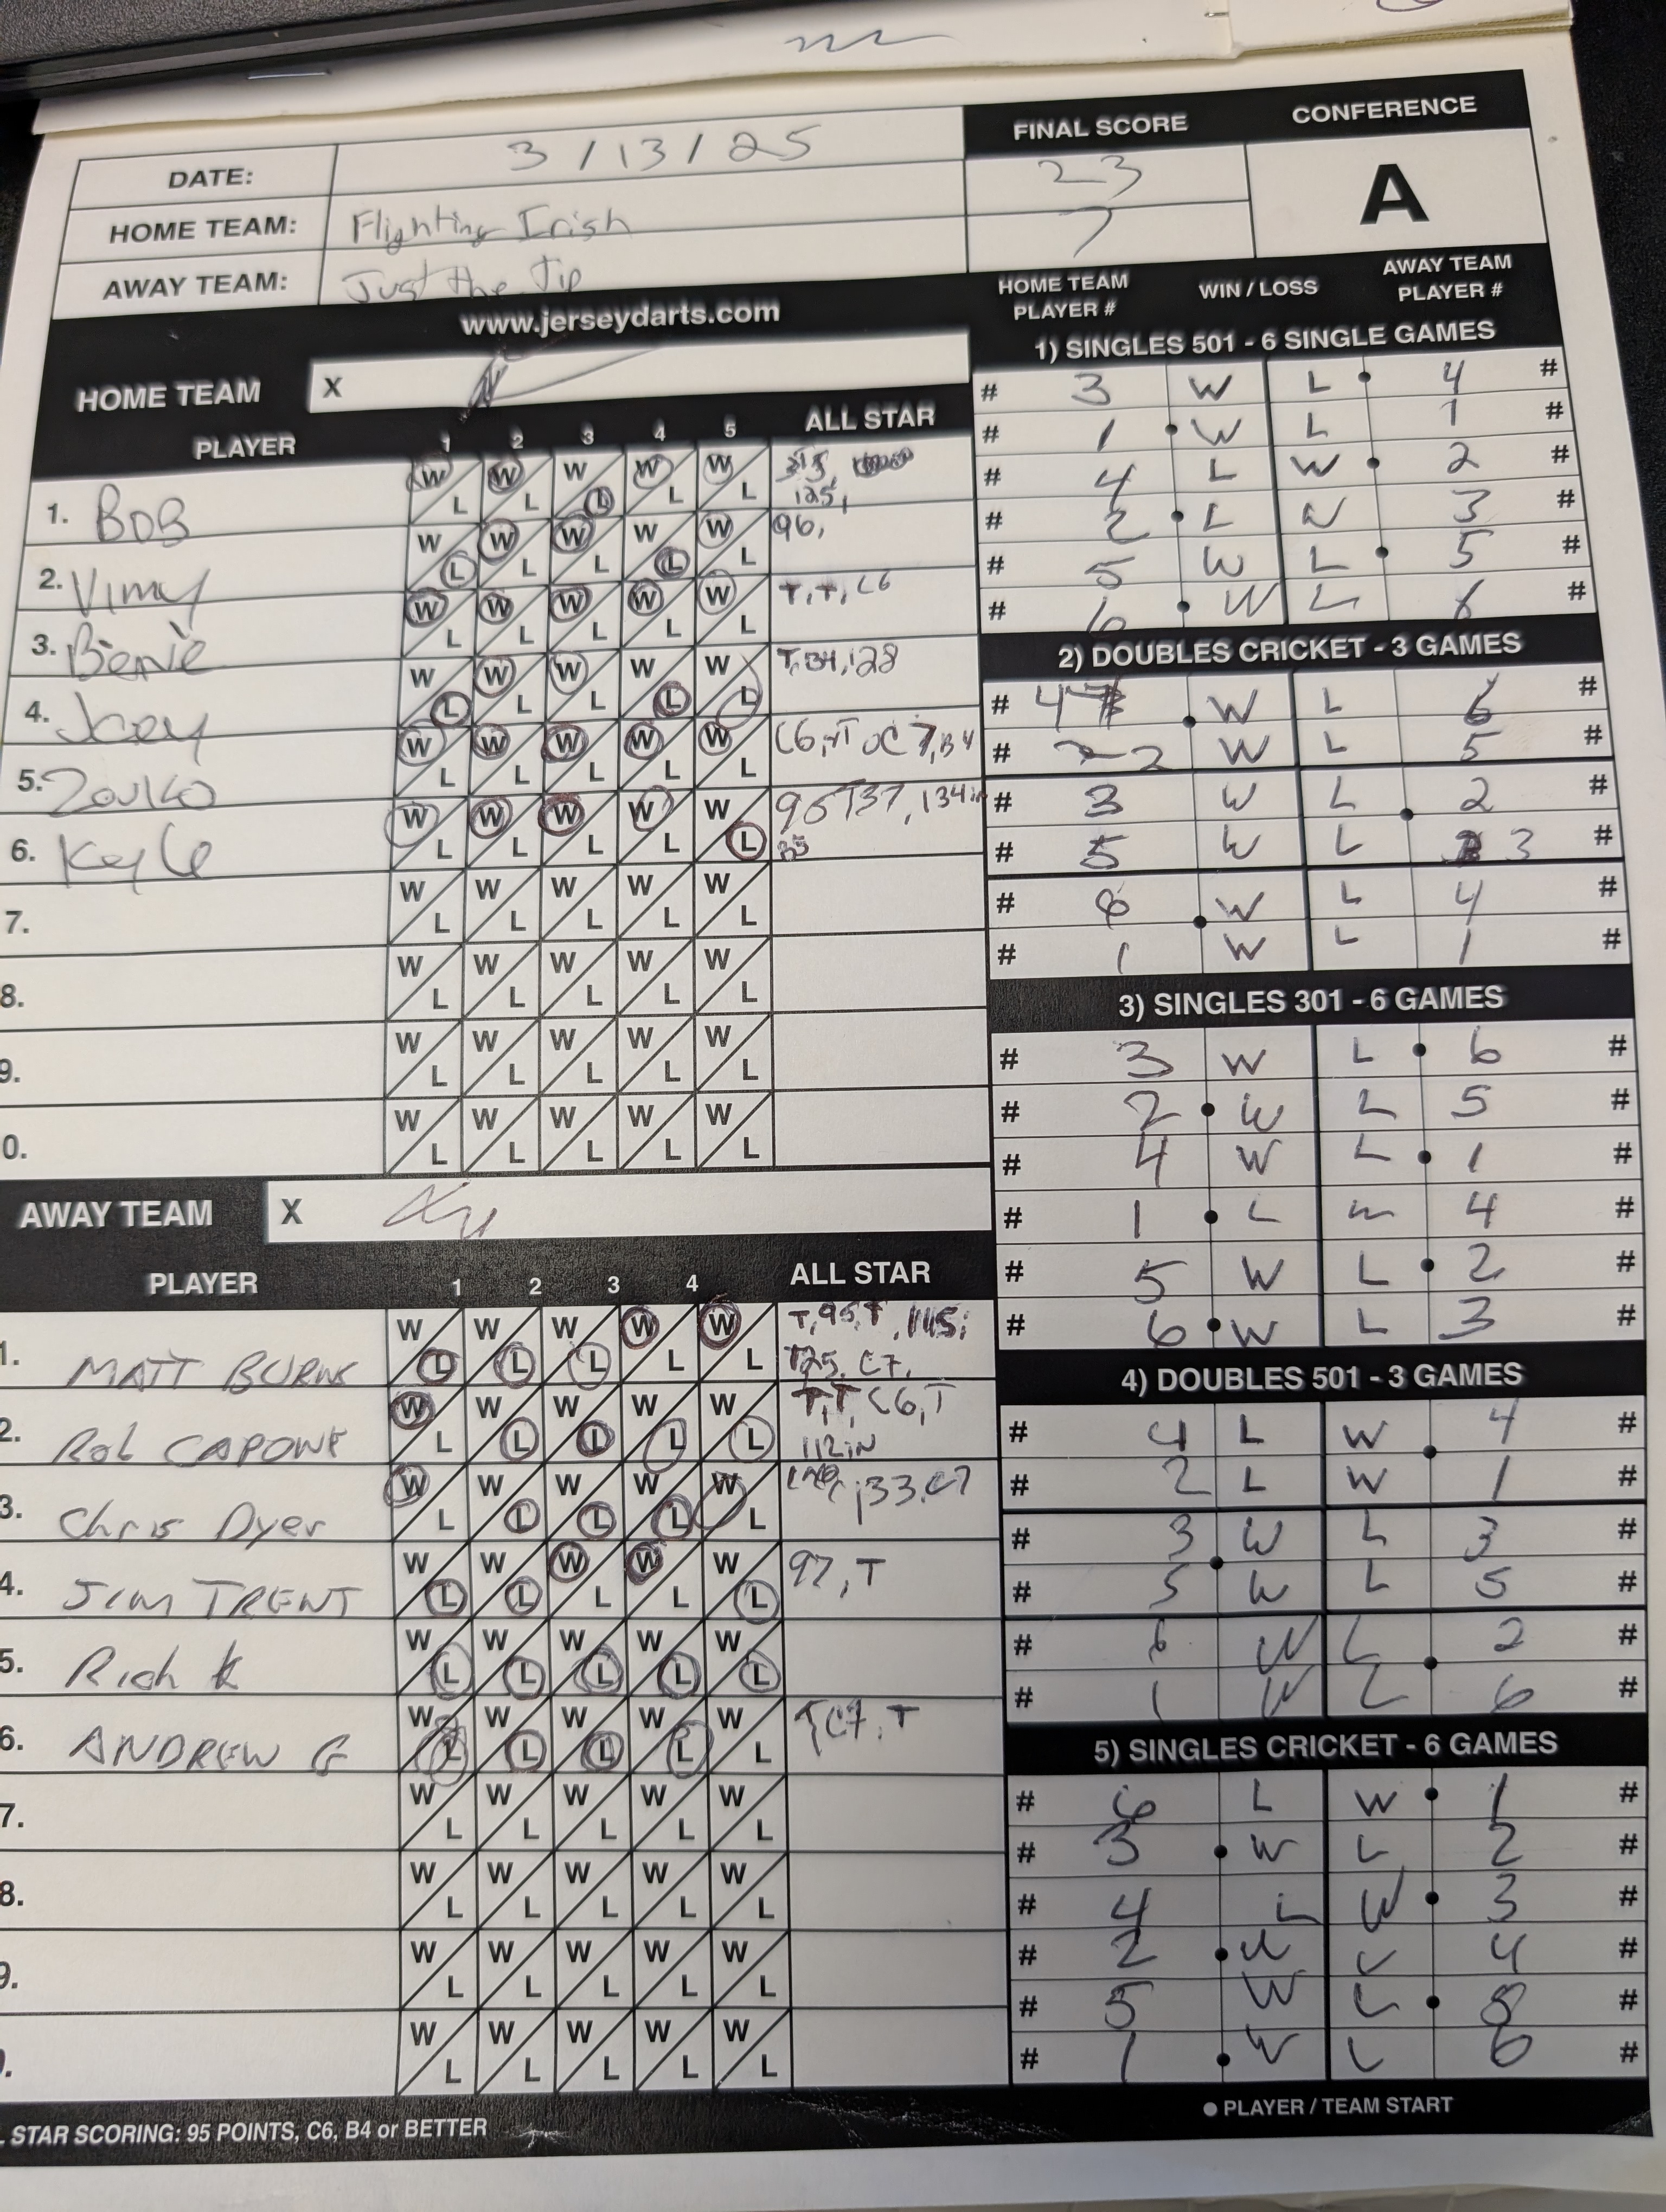 FINAL SCORE
CONFERENCE
DATE: 3/13/25
23
A
HOME TEAM: Flighting Irish
7
AWAY TEAM: Just the Tip
www.jerseydarts.com
HOME TEAM X
PLAYER 1 2 3 4 5 ALL STAR
1. BOB W L W L W L W L W L 125,
2. Vinny W L W L W L W L W L 96,
3. Bernie W L W L W L W L W L T, T, C6
4. Joey W L W L W L W L W L T, B4, 128
5. Zouko W L W L W L W L W L
6. Kyle W L W L W L W L W L
7. W L W L W L W L W L
8. W L W L W L W L W L
9. W L W L W L W L W L
0. W L W L W L W L W L
AWAY TEAM X
PLAYER 1 2 3 4 ALL STAR
1. MATT BURNS W L W L W L W L W L T, 95, T, C7,
2. Rob CAPONE W L W L W L W L W L T, T, C6, T
112 iN
3. Chris Dyer W L W L W L W L W L 133, C7
4. JIM TRENT W L W L W L W L W L 97, T
5. Rich K W L W L W L W L W L
6. ANDREW G W L W L W L W L W L T C7, T
7. W L W L W L W L W L
8. W L W L W L W L W L
9. W L W L W L W L W L
. W L W L W L W L W L
STAR SCORING: 95 POINTS, C6, B4 or BETTER
HOME TEAM PLAYER #
WIN / LOSS
AWAY TEAM PLAYER #
1) SINGLES 501 - 6 SINGLE GAMES
# 3 W L 4 #
# 1 W L 1 #
# 4 L W 2 #
# 2 L W 3 #
# 5 W L 5 #
# 6 W L #
2) DOUBLES CRICKET - 3 GAMES
# 4 W L 6 #
# 2 W L 5 #
# 3 W L 2 #
# 5 W L 3 #
# W L 4 #
# 1 W L 1 #
3) SINGLES 301 - 6 GAMES
# 3 W L 6 #
# 2 W L 5 #
# 4 W L 1 #
# 1 L W 4 #
# 5 W L 2 #
# 6 W L 3 #
4) DOUBLES 501 - 3 GAMES
# 4 L W 4 #
# 2 L W 1 #
# 3 W L 3 #
# 5 W L 5 #
# 6 W L 2 #
# 1 W L 6 #
5) SINGLES CRICKET - 6 GAMES
# 6 L W 1 #
# 3 W L 2 #
# 4 L W 3 #
# 2 W L 4 #
# 5 W L #
# 1 W L 6 #
● PLAYER / TEAM START